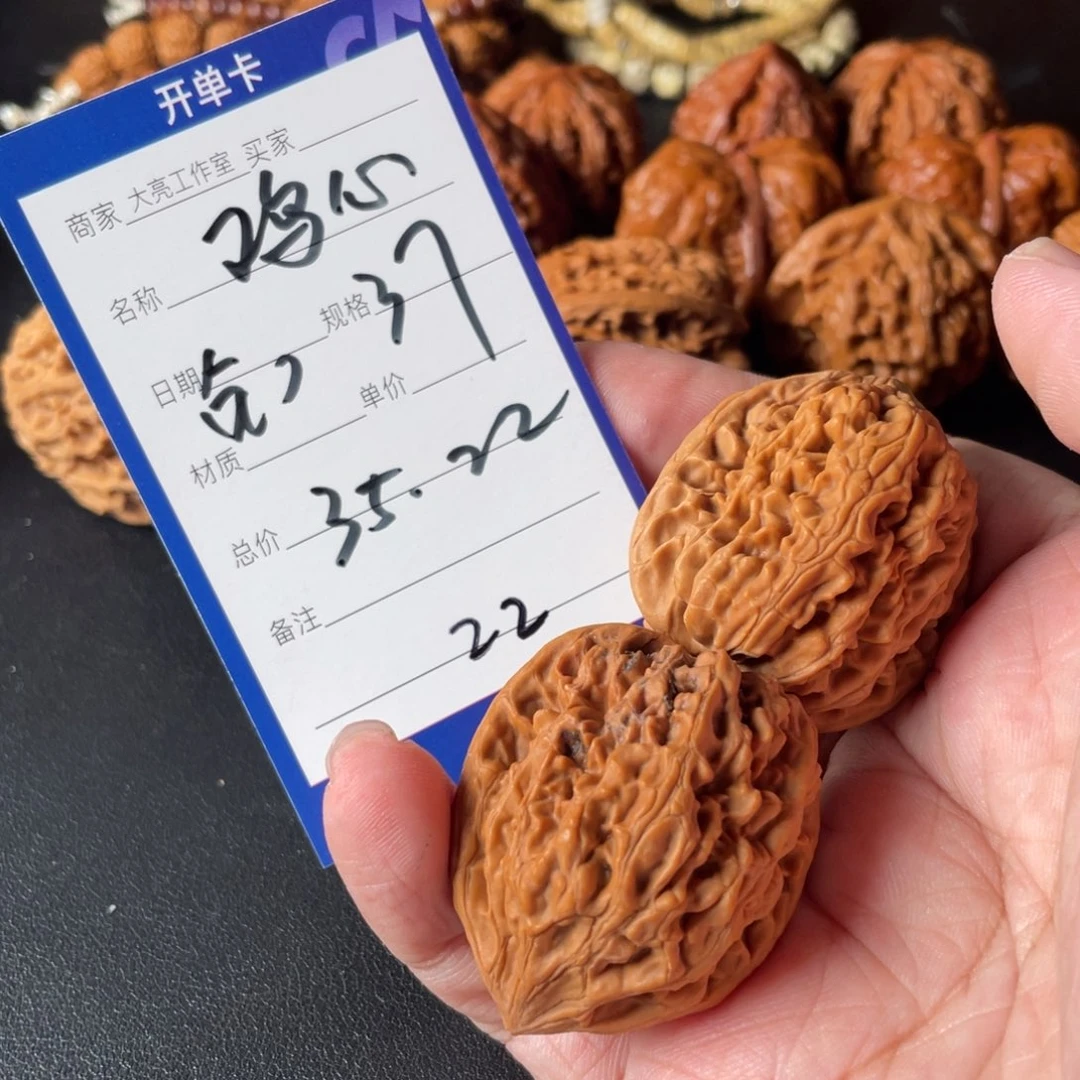 开单卡
商家 大亮工作室 买家
名称 鸡心
规格 37
日期
材质 单价
总价 35.22
备注
22